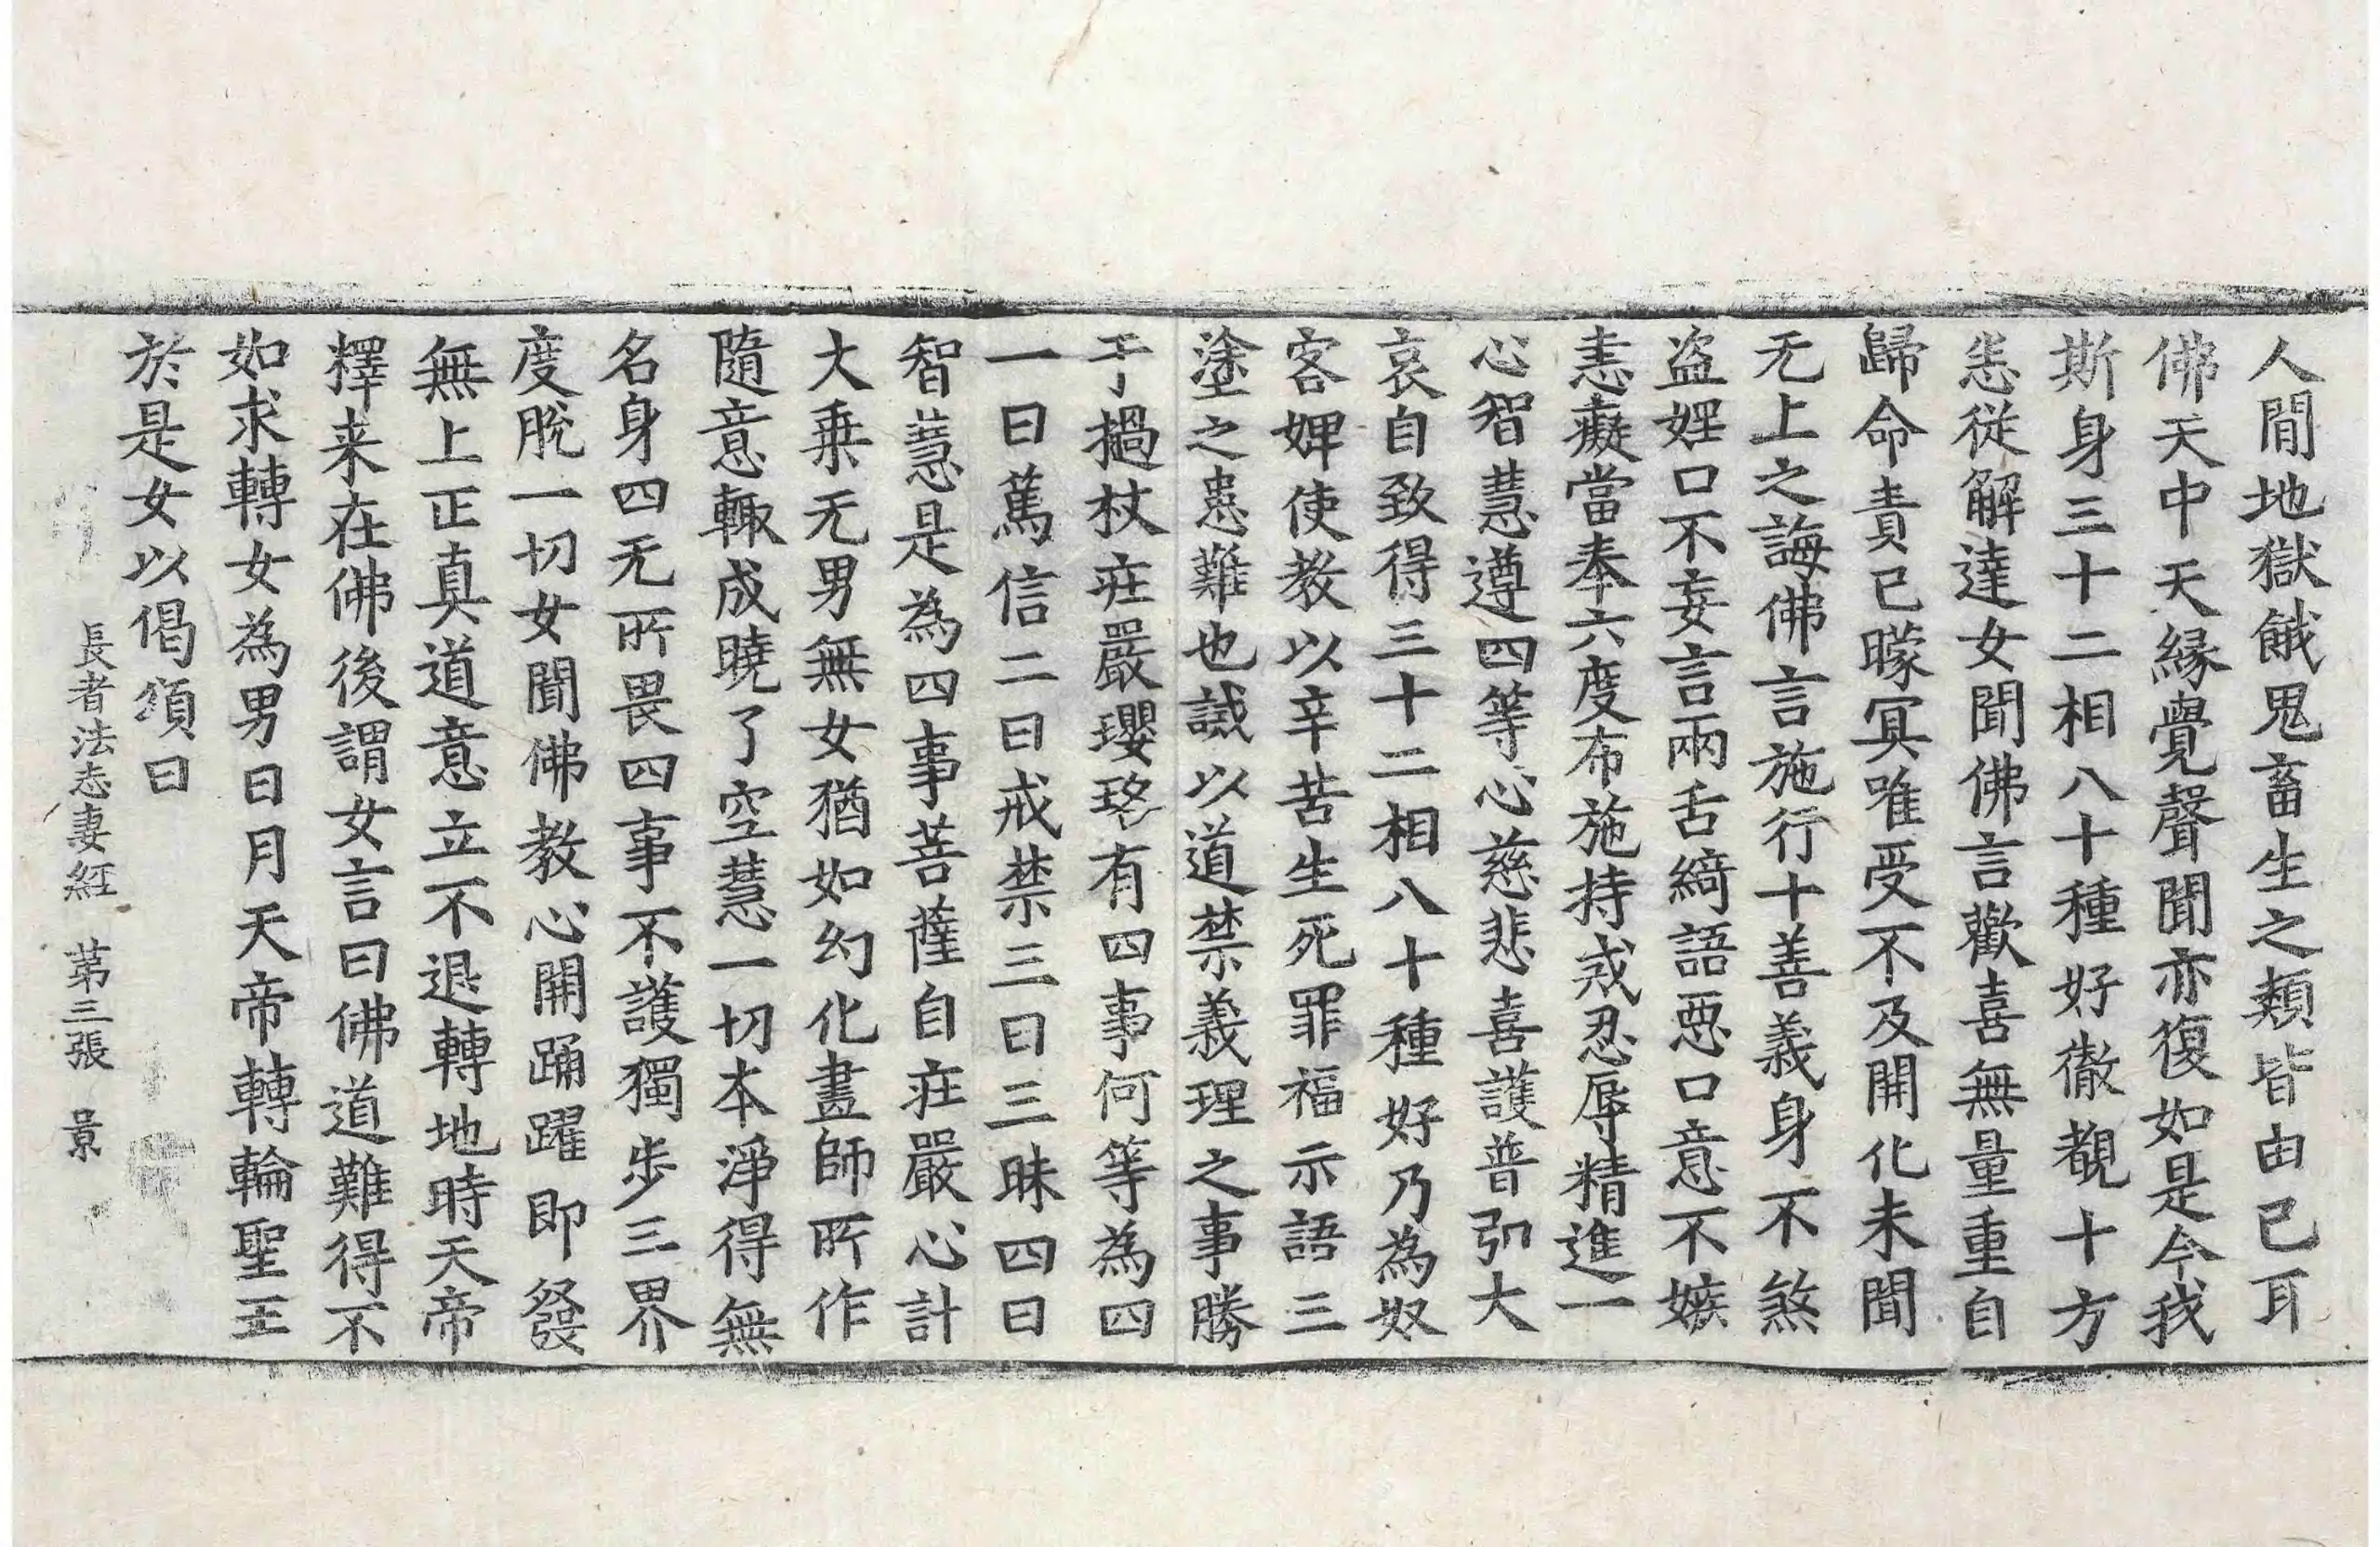 人間地獄餓鬼畜生之類皆由己耳
佛天中天緣覺聲聞亦復如是今我
斯身三十二相八十種好徹覩十方
恙從解達女聞佛言歡喜無量重自
歸命責已曚冥唯受不及開化未聞
无上之誨佛言施行十善義身不煞
盜婬口不妄言兩舌綺語惡口意不嫉
恚癡當奉六度布施持戒忍辱精進一
心智慧遵四等心慈悲喜護普弘大
哀自致得三十二相八十種好乃為奴
客婢使教以辛苦生死罪福示語三
塗之患難也誡以道禁義理之事勝
于撾杖莊嚴瓔珞有四事何等為四
一曰篤信二曰戒禁三曰三昧四曰
智慧是為四事菩薩自莊嚴心計
大乘无男無女猶如幻化畫師所作
隨意輙成曉了空慧一切本淨得無
名身四无所畏四事不護獨步三界
度脫一切女聞佛教心開踊躍即發
無上正真道意立不退轉地時天帝
釋来在佛後謂女言曰佛道難得不
如求轉女為男日月天帝轉輪聖王
於是女以偈頌曰
長者法志妻經　苐三張　景